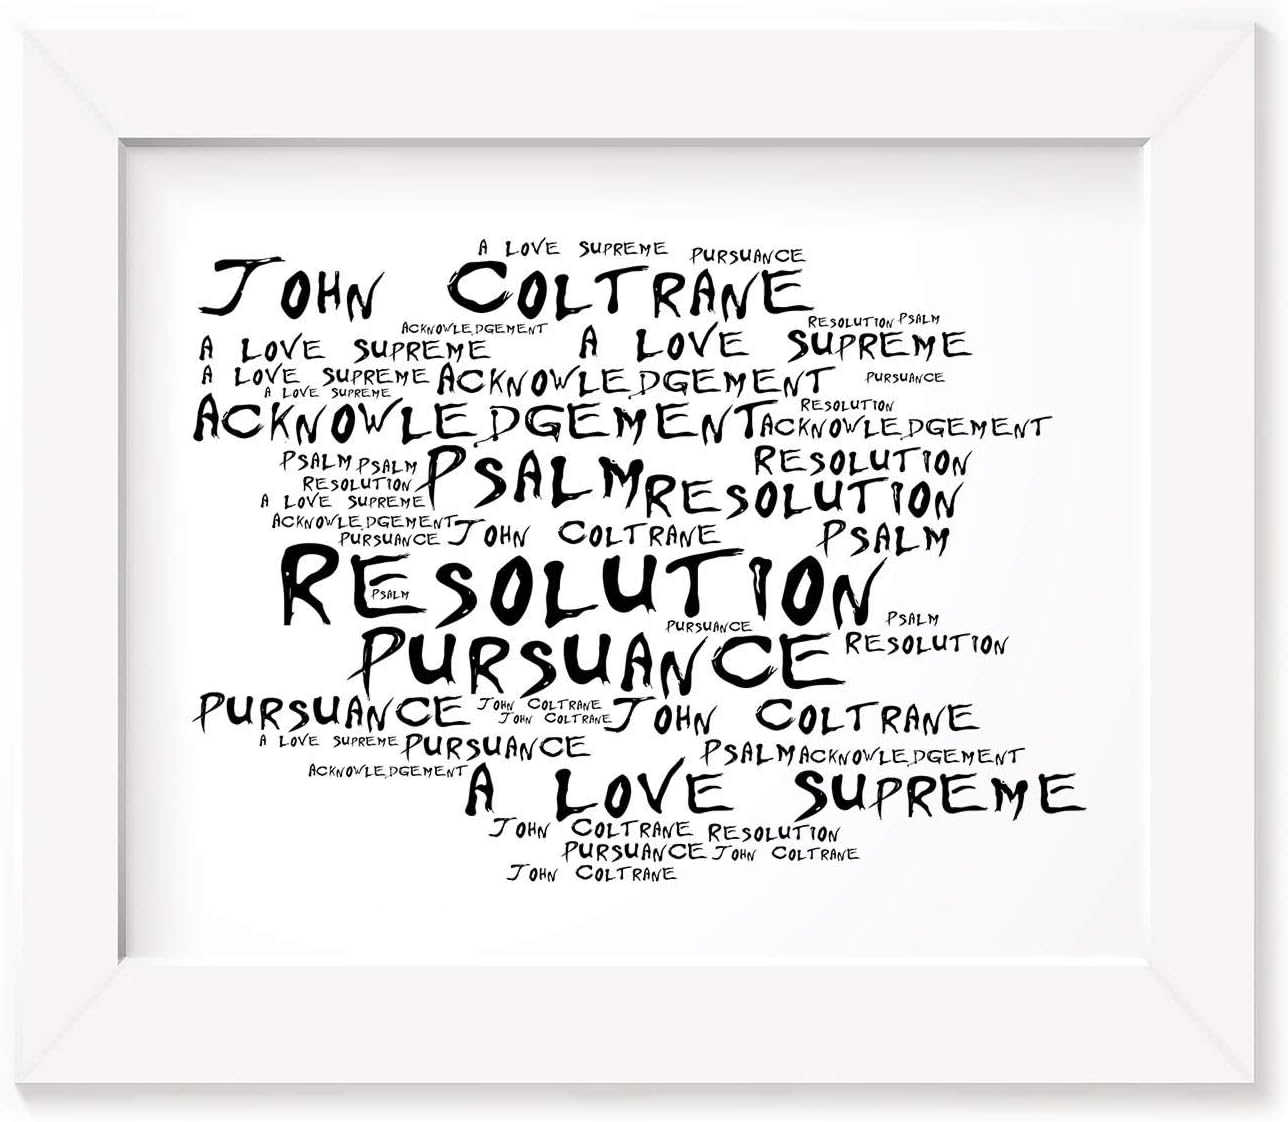 A LOVE SUPREME PURSUANCE
JOHN COLTRANE
ACKNOWLEDGEMENT RESOLUTION PSALM
A LOVE SUPREME A LOVE SUPREME
A LOVE SUPREME ACKNOWLEDGEMENT PURSUANCE
A LOVE SUPREME
ACKNOWLEDGEMENT RESOLUTION
ACKNOWLEDGEMENT
PSALM PSALM PSALM RESOLUTION
RESOLUTION RESOLUTION
A LOVE SUPREME
ACKNOWLEDGEMENT JOHN COLTRANE PSALM
PURSUANCE
RESOLUTION
PSALM
PURSUANCE PSALM
PURSUANCE RESOLUTION
PURSUANCE JOHN COLTRANE JOHN COLTRANE
JOHN COLTRANE
A LOVE SUPREME PURSUANCE PSALM ACKNOWLEDGEMENT
ACKNOWLEDGEMENT A LOVE SUPREME
JOHN COLTRANE RESOLUTION
PURSUANCE JOHN COLTRANE
JOHN COLTRANE